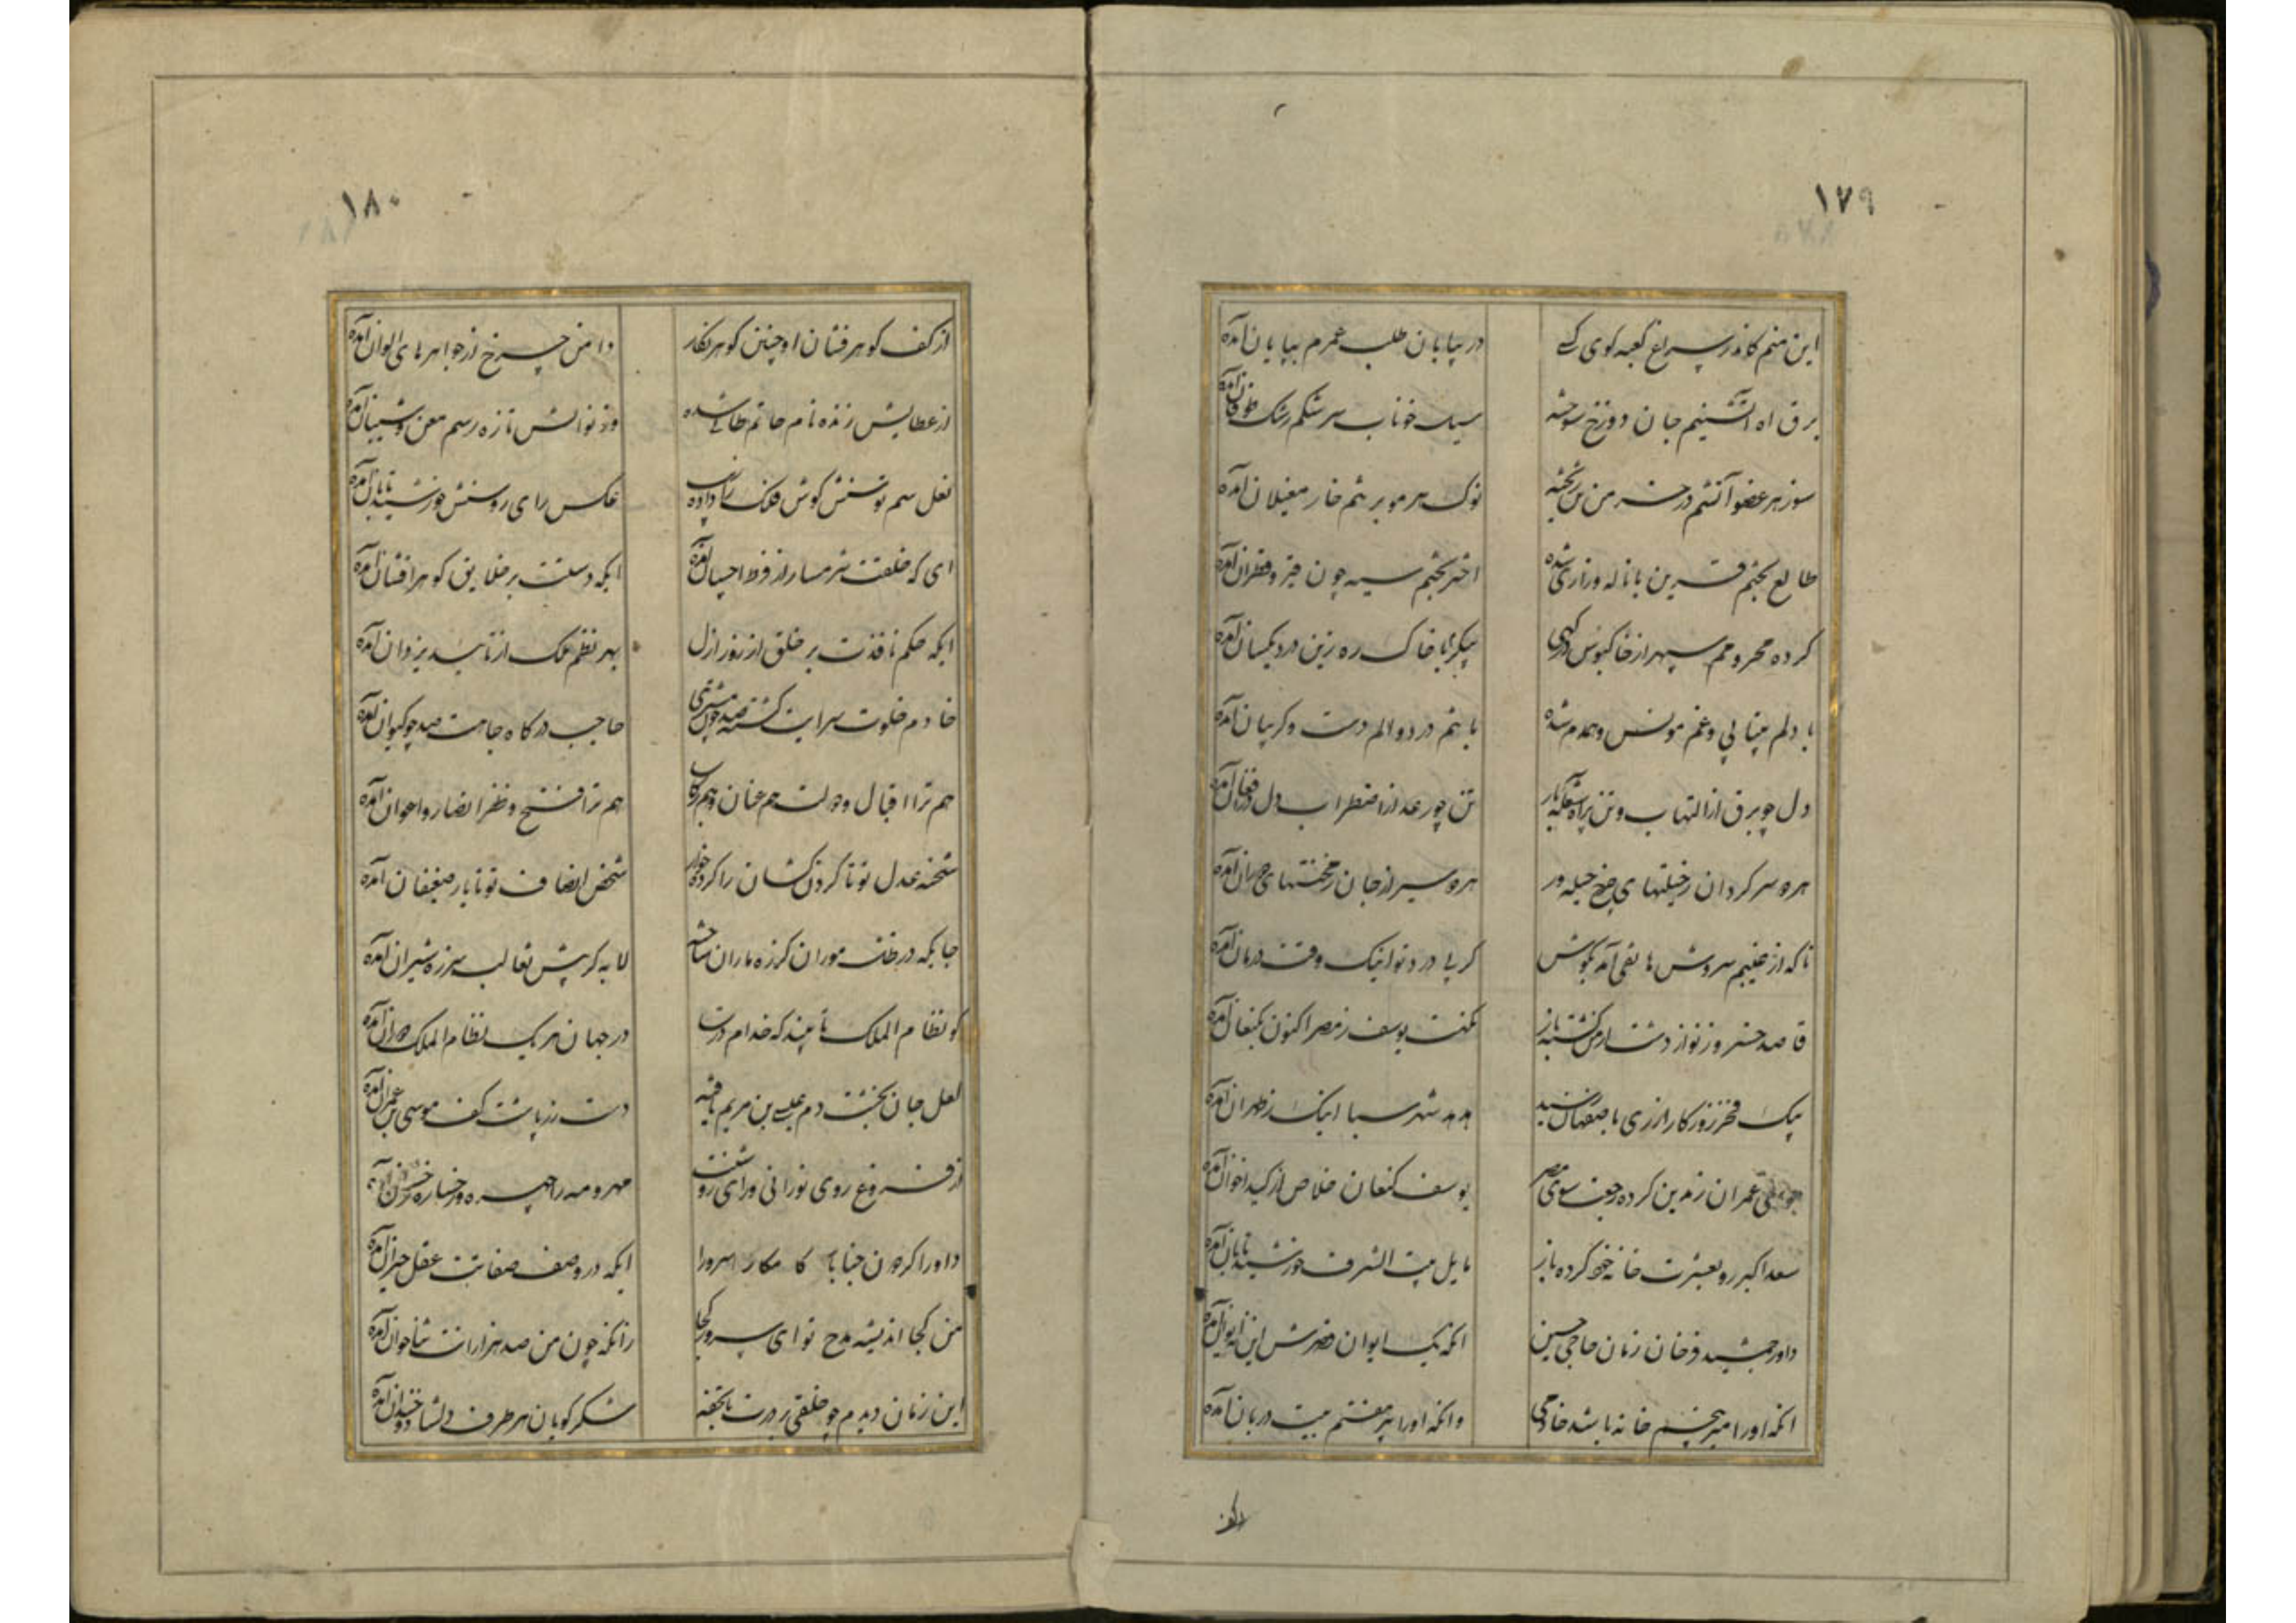 ۱۷۹
این منم کاندر سراغ کعبه کوی کسی در بیابان طلب عمرم بپایان آمده
برق اه اتشینم جان دوزخ سوخته سیل خوناب سرشکم رشک طوفان آمده
سوز هر عضو آتشم در خرمن تن ریخته نوک هر مو بر تنم خار مغیلان آمده
طالع بختم قرین با ناله و زاری شده اختر بختم سیه چون قیر و قطران آمده
کرده محرومم سپهر از خاکبوس درکهی پیکرم با خاک ره زین درد یکسان آمده
با دلم بیتابی و غم مونس و همدم شده با تنم درد و الم دست و کریبان آمده
دل چو برق از التهاب و تن پر اه شعله بار تن چو رعد از اضطراب دل در افغان آمده
هر و سرکردان ز حیلتهای چرخ حیله ور هر و سیر از جان ز محنتهای دوران آمده
ناکه از غیبم سروش هاتفی آمد بکوش کز پی درد تو اینک وقت درمان آمده
قاصد خسرو ز نو از دشت ارمن کشته باز نکهت یوسف ز مصر اکنون بکنعان آمده
پیک فخر روزکار از ری باصفهان رسید هدهد شهر سبا اینک ز طهران آمده
موسی عمران ز مدین کرده رجعت سوی مصر یوسف کنعان خلاص از کید اخوان آمده
سعد اکبر رو بعشرت خانه خود کرده باز مایل بیت الشرف خورشید تابان آمده
داور جمشید فر خان زمان حاجی حسین انکه یک ایوان قصرش این نه ایوان آمده
انکه او را میر پنجم خانه باشد خادمی وانکه او را پیر هفتم بیت دربان آمده
از کف
۱۸۰
از کف کوهرفشان او چنین کوهر نکار دامن چرخ از جواهرهای الوان آمده
از عطایش زنده نام حاتم طائی شده وز نوالش تازه رسم معن و شیبان آمده
نعل سم توسنش کوش فلک را زیب داده عکس رای روشنش خورشید تابان آمده
ای که خلقت شرمسار از فرط احسان آمده ایکه دستت بر خلایق کوهر افشان آمده
ایکه حکم نافذت بر خلق از روز ازل بهر نظم ملک از تایید یزدان آمده
خادم خلوت سرایت کشته صد چون مشتری حاجب درکاه جاهت صد چو کیوان آمده
هم ترا اقبال و دولت هم عنان و هم رکاب هم ترا فتح و ظفر انصار و اعوان آمده
شحنه عدل تو تا کردن کشان را کرده خوار شخص انصاف تو تا یار ضعیفان آمده
جایکه در خانه موران کرزه ماران ساخته لابه کر پیش ثعالب شرزه شیران آمده
کو نظام الملک تا بیند که خدام درت در جهان هر یک نظام الملک دوران آمده
لعل جان بخشت دم عیسی بن مریم یافته دست زرپاشت کف موسی بن عمران آمده
از فروغ روی نورانی و رای روشنت مهر و مه را چهره و رخساره رخشان آمده
داورا کردون جنابا کامکارا سرورا ایکه در وصف صفاتت عقل حیران آمده
من کجا اندیشه مدح تو ای سرور کجا زانکه چون من صد هزارانت ثناخوان آمده
این زمان دیدم چو خلقی بر درت با تحفه شکر کویان هر طرف دلشاد و خندان آمده